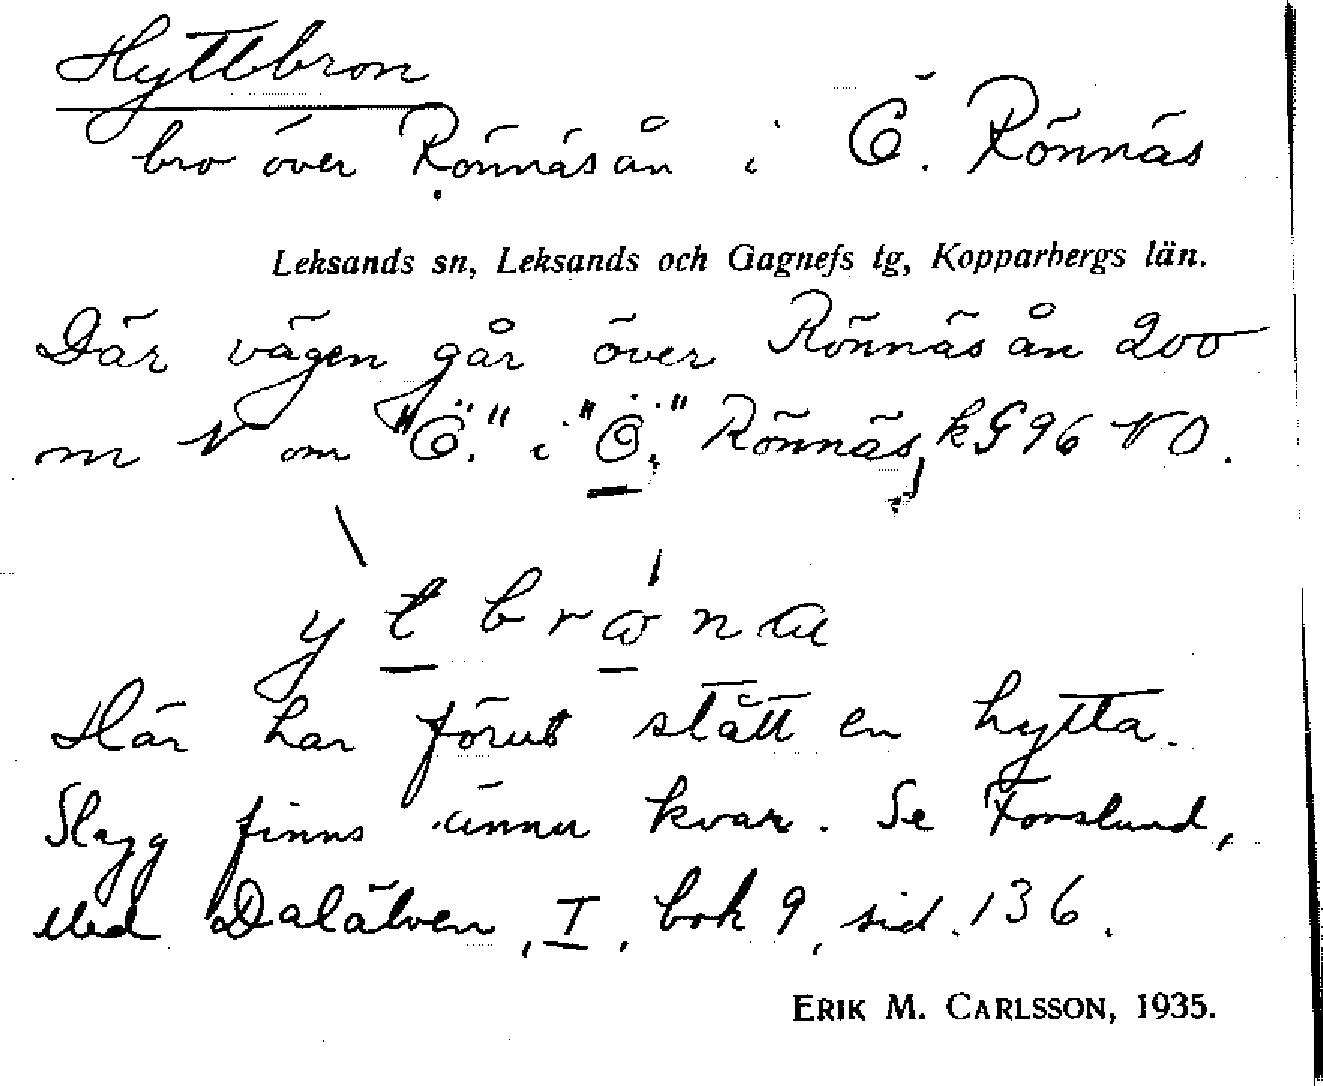 Hyttbron
bro över Rönnäsån i Ö. Rönnäs
Leksands sn, Leksands och Gagnefs tg, Kopparbergs län.
Där vägen går över Rönnäsån 200
m N om "Ö." i "Ö." Rönnäs, kG 96 NO.
ytbrona
Här har förut stått en hytta.
Slagg finns ännu kvar. Se Forslund,
Med Dalälven, I, bok 9, sid. 136.
ERIK M. CARLSSON, 1935.